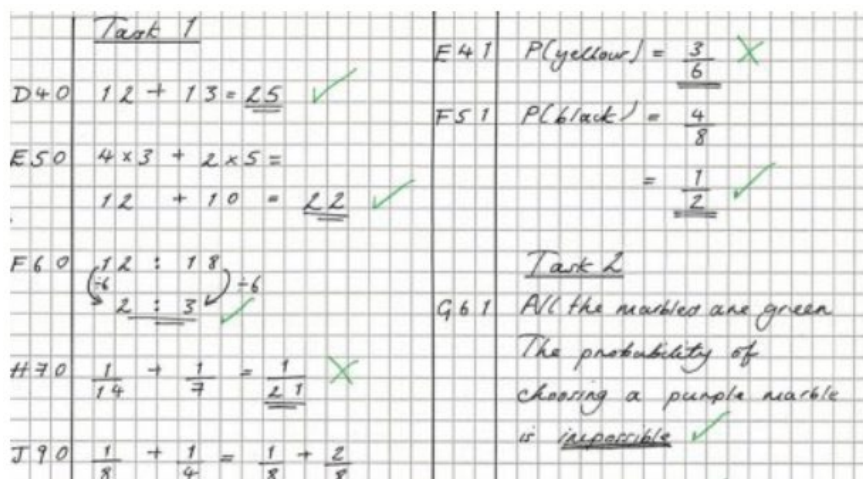 Task 1
D40 12 + 13 = 25
E50 4 × 3 + 2 × 5 =
12 + 10 = 22
F60 12 : 18
÷6 ÷6
2 : 3
H70 1/14 + 1/7 = 1/21
J90 1/8 + 1/4 = 1/8 + 2/8
E41 P(yellow) = 3/6
F51 P(black) = 4/8
= 1/2
Task 2
G61 All the marbled are green
The probability of
choosing a purple marble
is impossible